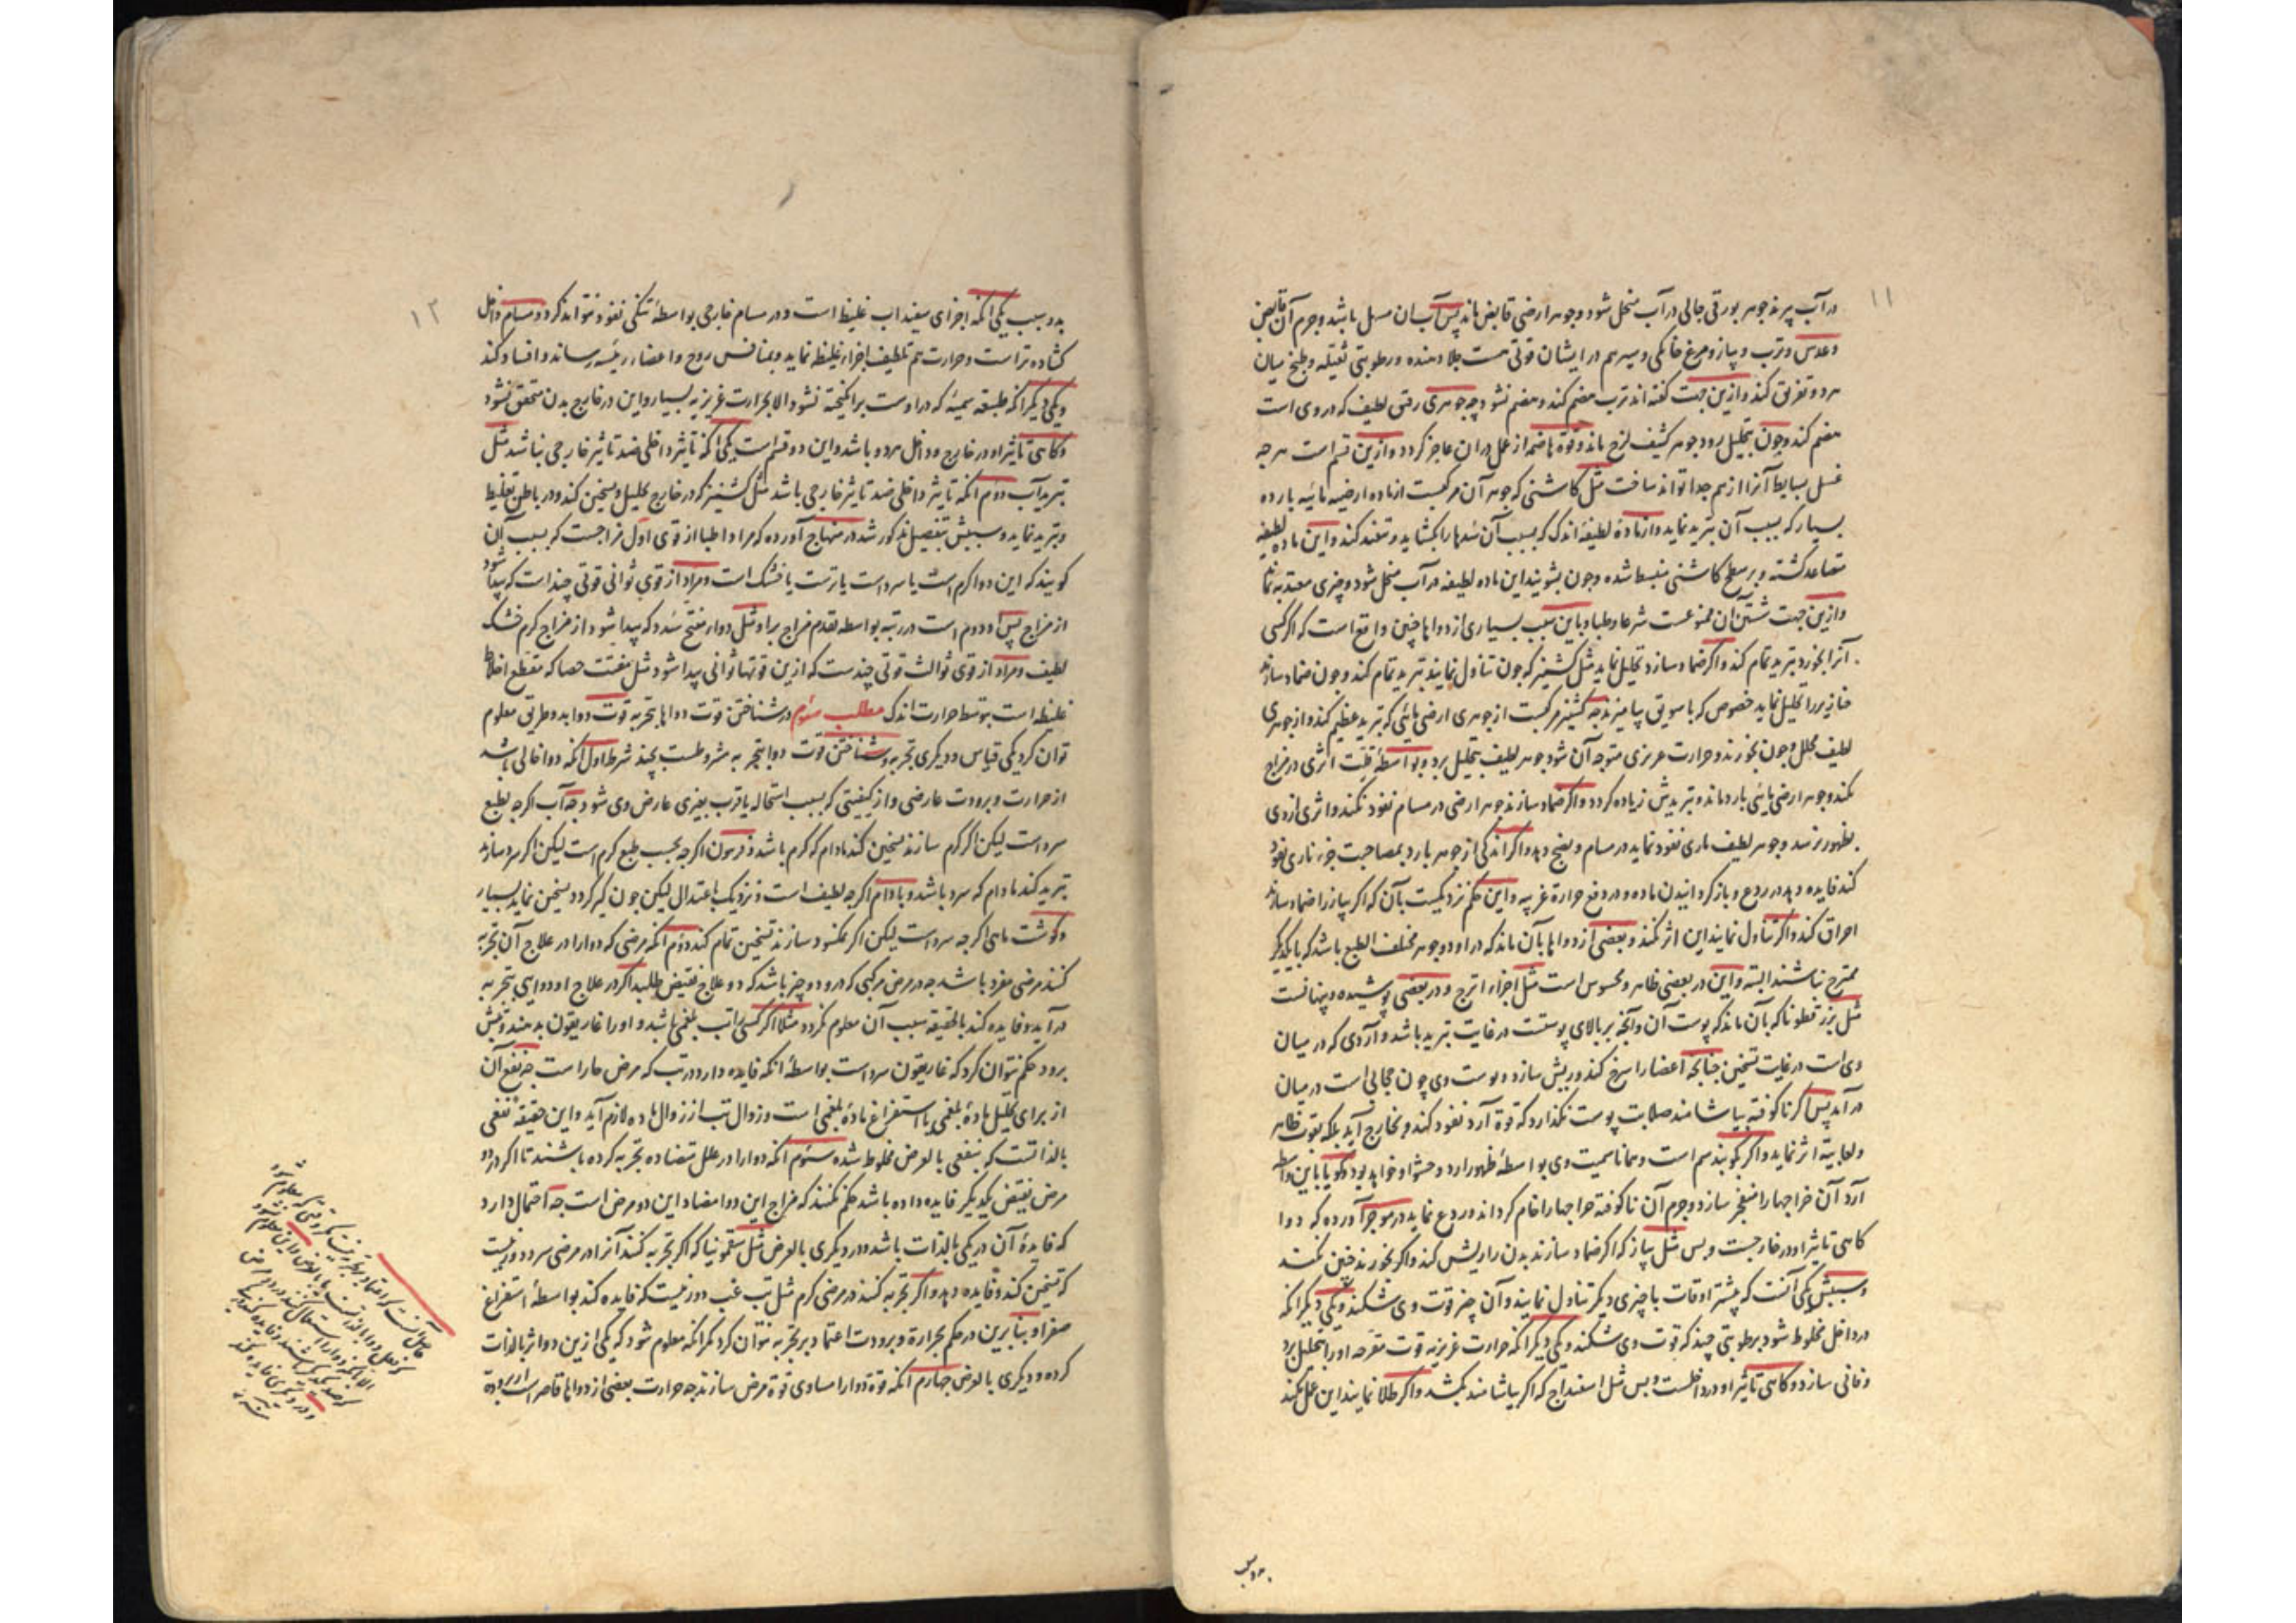 ۱۱
در آب پرند جوهر بورقی جالی در آب منحل شود و جوهر ارضی قابض ماند پس آب آن مسهل باشد و جرم آن قابض
و عدس و ترب و پیاز و مرغ خانگی و سیر هم در ایشان قوتی هست جلا دهنده و رطوبتی ثقیله و طبخ میان
هر دو تفریق کند و ازین جهت گفته اند ترب هضم کند و هضم نشود چه جوهری رقیق لطیف که در وی است
هضم کند و چون بتحلیل رود جوهر کثیف لزج ماند و قوة هاضمه از عمل در آن عاجز گردد و ازین قسم است هرچه
غسل بسایط آنرا از هم جدا تواند ساخت مثل کاشنی که جوهر آن مرکبست از ماده ارضیه مائیه بارده
بسیار که بسبب آن تبرید نماید و از ماده لطیفه اندک که بسبب آن سُدها را بکشاید و تنفیذ کند و این ماده لطیفه
متصاعد گشته و بر سطح کاشنی منبسط شده و چون بشویند این ماده لطیفه در آب منحل شود و چیزی معتد به نماند
و ازین جهت شستن آن ممنوعست شرعا و طبا و باین سبب بسیاری از دواها چنین واقع است که اگر کسی
آنرا بخورد تبرید تمام کند و اگر ضماد سازد تحلیل نماید مثل کشنیز که چون تناول نمایند تبرید تمام کند و چون ضماد سازند
خنازیر را تحلیل نماید خصوص که با سویق بیامیزند چه کشنیز مرکبست از جوهری ارضی مائی که تبرید عظیم کند و از جوهری
لطیف محلل و چون بخورند و حرارت غریزی متوجه آن شود جوهر لطیف بتحلیل برد و بواسطهٔ قلت اثری در مزاج
نکند و جوهر ارضی مائی بارد ماند و تبریدش زیاده گردد و اگر ضماد سازند جوهر ارضی در مسام نفوذ نکند و اثری از وی
بظهور نرسد و جوهر لطیف ناری نفوذ نماید در مسام و نضج دهد و اگر اندکی از جوهر بارد بمصاحبت جزء ناری نفوذ
کند فایده دهد در ردع و باز گردانیدن ماده و در دفع حرارة غریبه و این حکم نزدیکست بآن که اگر پیاز را ضماد سازند
احراق کند و اگر تناول نمایند این اثر نکند و بعضی از دواها بآن ماند که در او دو جوهر مختلف الطبع باشد که با یکدیگر
ممتزج نباشند البته و این در بعضی ظاهر و محسوس است مثل اجزاء اترج و در بعضی پوشیده و پنهانست
مثل بزرقطونا که بآن ماند که پوست آن و آنچه بر بالای پوستست در غایت تبرید باشد و آردی که در میان
وی است در غایت تسخین چنانچه اعضا را سرخ کند و ریش سازد و پوست وی چون حجابی است در میان
در آید پس اگر ناکوفته بیاشامند صلابت پوست نگذارد که قوة آرد نفوذ کند و بخارج آید بلکه بقوت ظاهر
و لعابیته اثر نماید و اگر بکوبند سم است و همانا سمیت وی بواسطهٔ ظهور آرد و حشو او خواهد بود و گویا باین واسطه
آرد آن خراجها را منفجر سازد و جرم آن ناکوفته خراجها را خام گرداند و ردع نماید در موجز آورده که دوا
گاهی تاثیر او در خارجست و بس مثل پیاز که اگر ضماد سازند بدن را ریش کند و اگر بخورند چنین نکند
و سببش یکی آنست که بیشتر اوقات با چیزی دیگر تناول نمایند و آن چیز قوت وی شکند و یکی دیگر انکه
در داخل مخلوط شود برطوبتی چند که قوت وی شکند و یکی دیگر انکه حرارت غریزیه قوت مقرحه او را بتحلیل برد
و فانی سازد و گاهی تاثیر او در داخلست و بس مثل اسفیداج که اگر بیاشامند بکشد و اگر طلا نمایند این عمل نکند
بدو سبب
۱۲
بدو سبب یکی انکه اجزای سفیداب غلیظ است و در مسام خارجی بواسطهٔ تنگی نفوذ نتواند کرد و مسام داخل
گشاده تر است و حرارت هم تلطیف اجزاء غلیظه نماید و بمنافس روح و اعضاء رئیسه رساند و افساد کند
و یکی دیگر انکه طبیعه سمیه که در اوست برانگیخته نشود الا بحرارت غریزیه بسیار و این در خارج بدن متحقق نشود
و گاهی تاثیر او در خارج و داخل هر دو باشد و این دو قسم است یکی انکه تاثیر داخلی ضد تاثیر خارجی نباشد مثل
تبرید آب دوم انکه تاثیر داخلی ضد تاثیر خارجی باشد مثل کشنیز که در خارج تحلیل و تسخین کند و در باطن تغلیظ
و تبرید نماید و سببش بتفصیل مذکور شد در منهاج آورده که مراد اطبا از قوی اول مزاجست که بسبب آن
گویند که این دوا گرم است یا سرد است یا ترست یا خشک است و مراد از قوی ثوانی قوتی چند است که پیدا شود
از مزاج پس او دوم است در رتبه بواسطه تقدم مزاج بر او مثل دواء مفتح سُدد که پیدا شود از مزاج گرم خشک
لطیف و مراد از قوی ثوالث قوتی چندست که ازین قوتها ثوانی پیدا شود مثل مفتت حصا که مقطع اخلاط
غلیظه است بتوسط حرارت اندک مطلب سوم در شناختن قوت دواها بتجربه قوت دوا بدو طریق معلوم
توان کرد یکی قیاس و دیگری تجربه و شناختن قوت دوا بتجربه مشروطست بچند شرط اول انکه دوا خالی باشد
از حرارت و برودت عارضی و از کیفیتی که بسبب استحاله یا قرب بغیری عارض وی شود چه آب اگرچه بطبع
سرد است لیکن اگر گرم سازند تسخین کند مادام که گرم باشد و فرفیون اگرچه بحسب طبع گرم است لیکن اگر سرد سازند
تبرید کند مادام که سرد باشد و بادام اگرچه لطیف است و نزدیک باعتدال لیکن چون گیر گردد تسخین نماید بسیار
و گوشت ماهی اگرچه سرد است لیکن اگر نمکسود سازند تسخین تمام کند دوم انکه مرضی که دوا را در علاج آن تجربه
کنند مرضی مفرد باشد چه در مرض مرکبی که در و دو چیز باشد که دو علاج نقیض طلبد اگر در علاج او دوایی بتجربه
در آید و فایده کند بالحقیقه سبب آن معلوم نگردد مثلا اگر کسی را تب بلغمی باشد و او را غاریقون بدهند و تبش
برود حکم نتوان کرد که غاریقون سرد است بواسطهٔ انکه فایده دارد در تب که مرض حار است چه نفع آن
از برای تحلیل مادهٔ بلغمی یا استفراغ مادهٔ بلغمی است و زوال تب از زوال ماده لازم آید و این حقیقة نفعی
بالذاتست که بنفعی بالعرض مخلوط شده سوم انکه دوا را در علل متضاده تجربه کرده باشند تا اگر در دو
مرض نقیض یکدیگر فایده داده باشد حکم نکنند که مزاج این دوا مضاد این دو مرض است چه احتمال دارد
که فایدهٔ آن در یکی بالذات باشد و در دیگری بالعرض مثل سقمونیا که اگر تجربه کنند آنرا در مرضی سرد دور نیست
که تسخین کند و فایده دهد و اگر تجربه کنند در مرضی گرم مثل تب غب دور نیست که فایده کند بواسطهٔ استفراغ
صفرا و بنابرین در حکم بحرارة و برودت اعتماد بر تجربه نتوان کرد مگر انکه معلوم شود که یکی ازین دو اثر بالذات
کرده و دیگری بالعرض چهارم انکه قوة دوا را مساوی قوة مرض سازند چه حرارت بعضی از دواها قاصر است از برودة